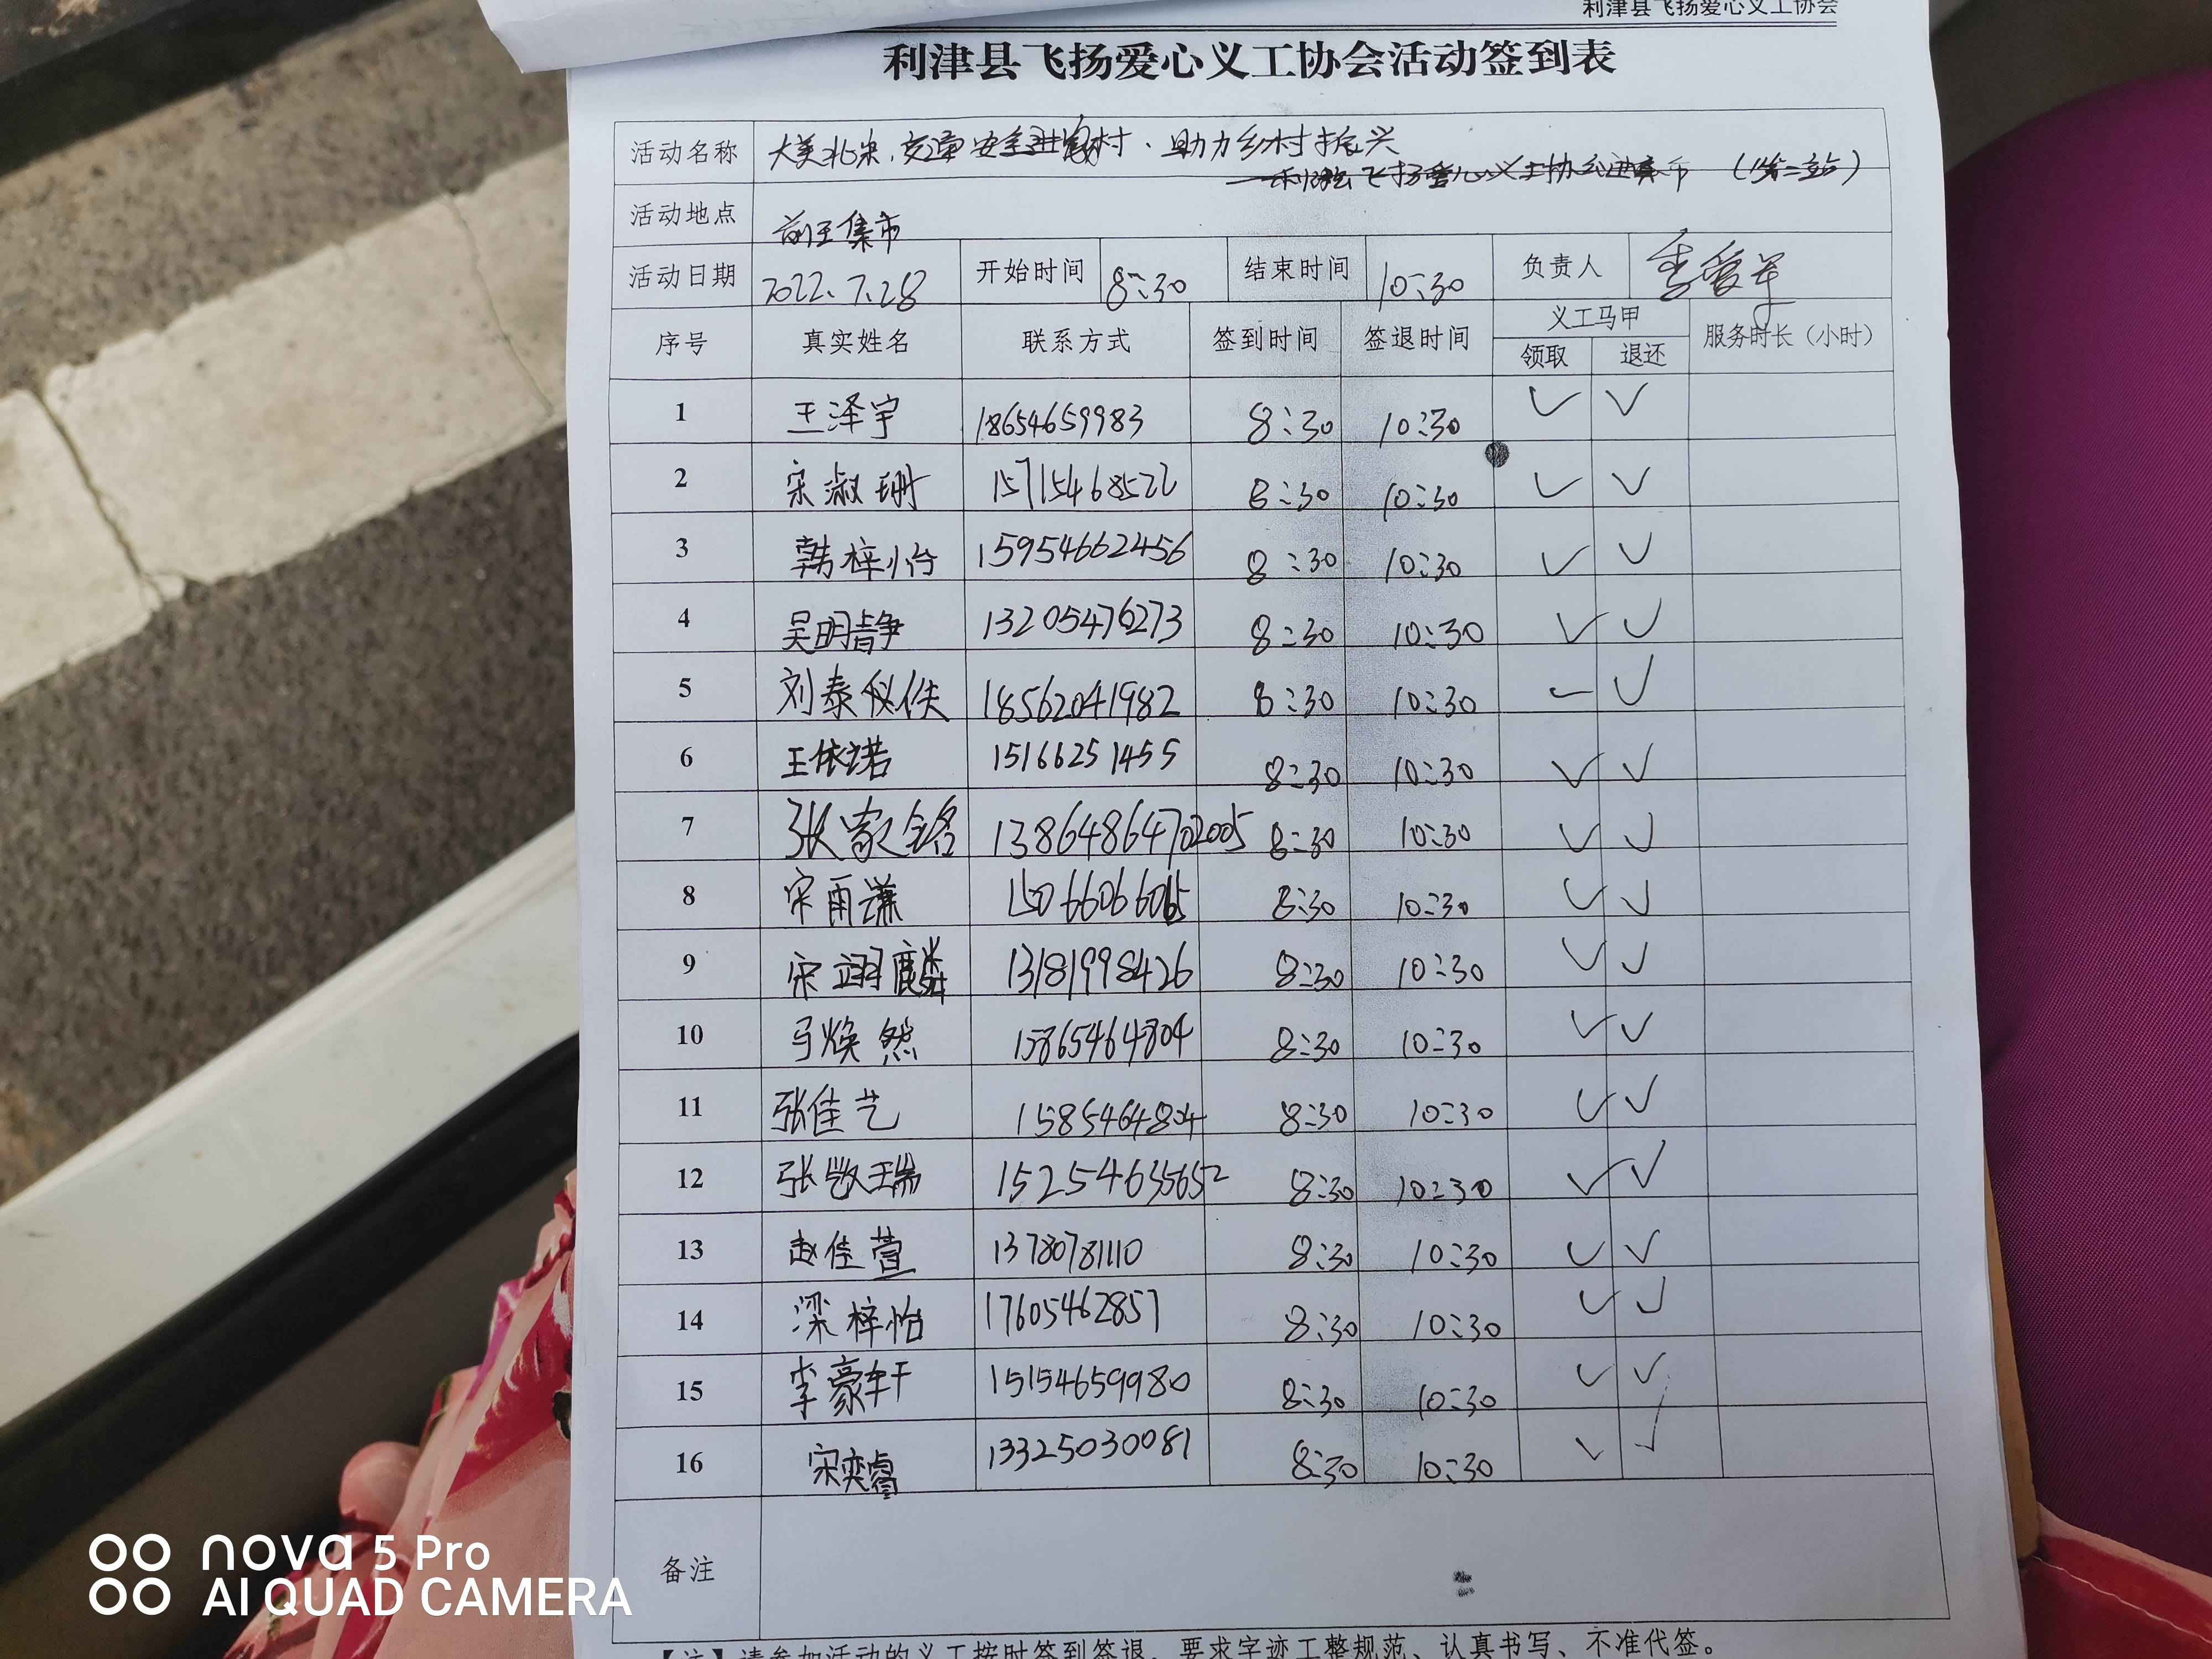 利津县飞扬爱心义工协会
利津县飞扬爱心义工协会活动签到表
活动名称 大美北宋,交通安全进农村、助力乡村振兴
飞扬爱心义工协会进集市 (第二站)
活动地点 前王集市
活动日期 2022.7.28 开始时间 8:30 结束时间 10:30 负责人
序号 真实姓名 联系方式 签到时间 签退时间 义工马甲 服务时长(小时)
领取 退还
1 王泽宇 18654659983 8:30 10:30 ✓ ✓
2 宋淑珊 15715468522 8:30 10:30 ✓ ✓
3 韩梓怡 15954662456 8:30 10:30 ✓ ✓
4 吴明静 13205476273 8:30 10:30 ✓ ✓
5 刘泰佚 18562041982 8:30 10:30 ✓ ✓
6 王依诺 15166251455 8:30 10:30 ✓ ✓
7 张家铭 8:30 10:30 ✓ ✓
8 宋雨谦 8:30 10:30 ✓ ✓
9 宋翊麟 13181998426 8:30 10:30 ✓ ✓
10 马焕然 15865464804 8:30 10:30 ✓ ✓
11 张佳艺 1585464804 8:30 10:30 ✓ ✓
12 张敬瑞 15254635652 8:30 10:30 ✓ ✓
13 赵佳萱 13780781110 8:30 10:30 ✓ ✓
14 梁梓怡 17605462857 8:30 10:30 ✓ ✓
15 李豪轩 15154659980 8:30 10:30 ✓ ✓
16 宋奕睿 13325030081 8:30 10:30 ✓ ✓
备注
【注】请参加活动的义工按时签到签退，要求字迹工整规范、认真书写、不准代签。
nova 5 Pro
AI QUAD CAMERA